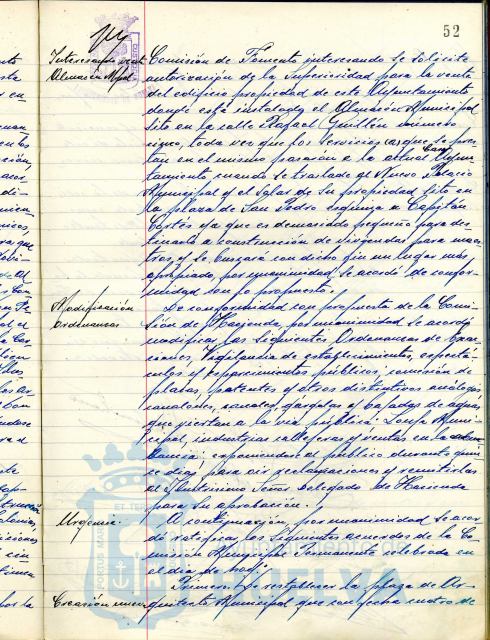 52
Interesando venta
Almacén Mpal.
Comisión de Fomento interesando se solicite
autorización de la Superioridad para la venta
del edificio propiedad de este Ayuntamiento
donde está instalado el Almacén Municipal
sito en la calle Rafael Guillén número
cinco, toda vez que los servicios que se pres-
tan en el mismo pasarán a la actual Casa Ayun-
tamiento cuando se traslade al Nuevo Palacio
Municipal y el solar de su propiedad sito en
la plaza de San Pedro esquina a Capitán
Cortés ya que es demasiado pequeño para des-
tinarlo a construcción de viviendas para maes-
tros, y se buscará con dicho fin un lugar más
apropiado, por unanimidad se acordó de confor-
midad con lo propuesto.
Modificación
Ordenanzas
De conformidad con propuesta de la Comi-
sión de Hacienda, por unanimidad se acordó
modificar las siguientes Ordenanzas de exac-
ciones, Vigilancia de establecimientos, espectá-
culos y esparcimientos públicos; concesión de
placas, patentes y otros distintivos análogos
canalones, canales, gárgolas y bajadas de aguas
que viertan a la vía pública; Lonja Muni-
cipal, industrias callejeras y ventas en la
exponiendose al público durante quin-
ce días para oir reclamaciones y remitirlas
al Ilustrísimo Señor Delegado de Hacienda
para su aprobación.
Urgencia.
A continuación, por unanimidad se acor-
dó ratificar los siguientes acuerdos de la Co-
misión Municipal Permanente celebrada en
el día de hoy:
Primero: Restablecer la plaza de Ar-
Creación nueva
quitecto Municipal que con fecha cuatro de
PORTUS MARIS
ET TER
HUELVA